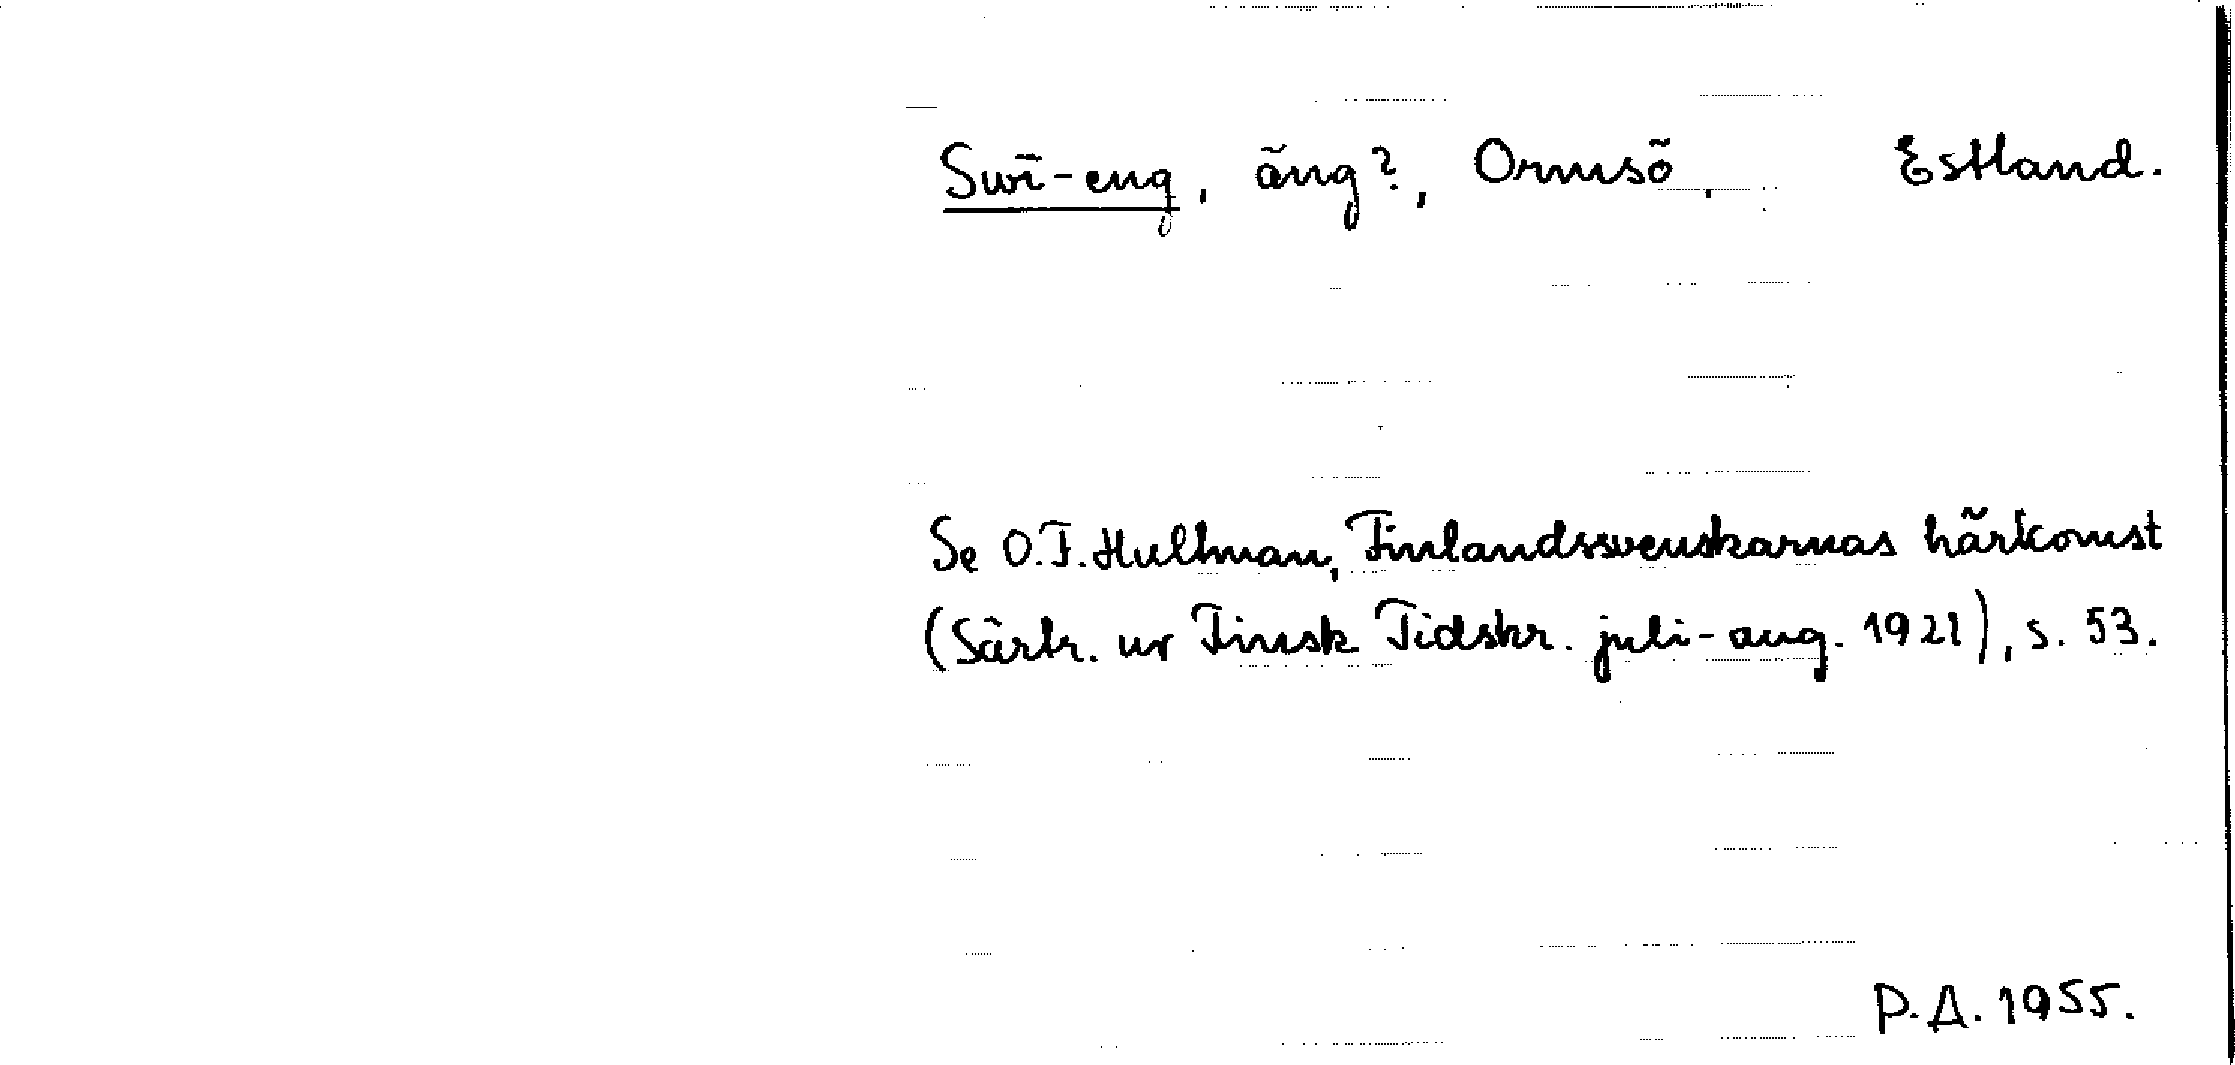 Swī-eng, äng?, Ormsö, Estland.
Se O.F. Hultman, Finlandssvenskarnas härkomst
(Särtr. ur Finsk Tidskr. juli-aug. 1921), s. 53.
P.A. 1955.